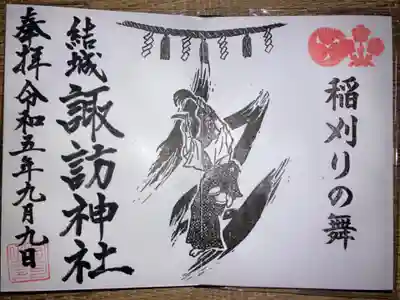 稲刈りの舞
結城
諏訪神社
奉拝 令和五年九月九日